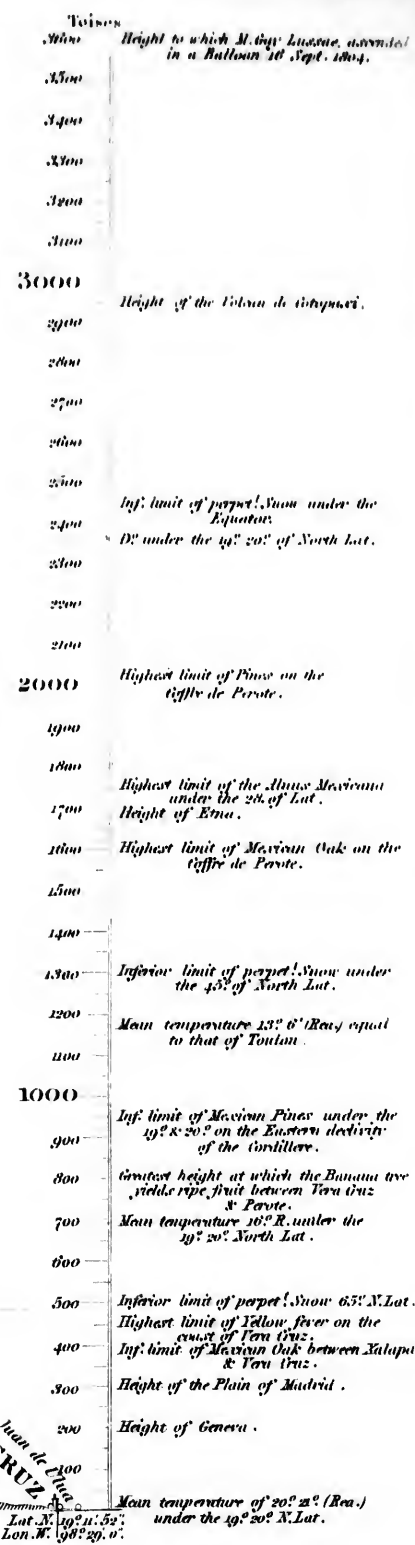 Toises
3600 Height to which M. Gay Lussac, ascended
in a Balloon 16 Sept. 1804.
3500
3400
3300
3200
3100
3000
Height of the Volcan de Cotopaxi.
2900
2800
2700
2600
2500
Inf. limit of perpet! Snow under the
Equator.
2400
D? under the 19? 20? of North Lat.
2300
2200
2100
Highest limit of Pines on the
2000
Coffre de Perote.
1900
1800
Highest limit of the Alnus Mexicana
under the 28. of Lat.
1700 Height of Etna.
1600 Highest limit of Mexican Oak on the
Coffre de Perote.
1500
1400
1300 Inferior limit of perpet! Snow under
the 45? of North Lat.
1200
Mean temperature 13? 6' (Rea.) equal
to that of Toulon.
1100
1000
Inf. limit of Mexican Pines under the
19? & 20? on the Eastern declivity
900
of the Cordillere.
800 Greatest height at which the Banana tree
yields ripe fruit between Vera Cruz
& Perote.
700 Mean temperature 16? R. under the
19? 20? North Lat.
600
500 Inferior limit of perpet! Snow 65? N. Lat.
Highest limit of Yellow fever on the
coast of Vera Cruz.
400 Inf. limit of Mexican Oak between Xalapa
& Vera Cruz.
300 Height of the Plain of Madrid.
200 Height of Geneva.
100
Juan de Ulua
CRUZ
Mean temperature of 20? 21? (Rea.)
under the 19? 20? N. Lat.
Lat. N. 19? 11'. 52".
Lon. W. 98? 29. 0".